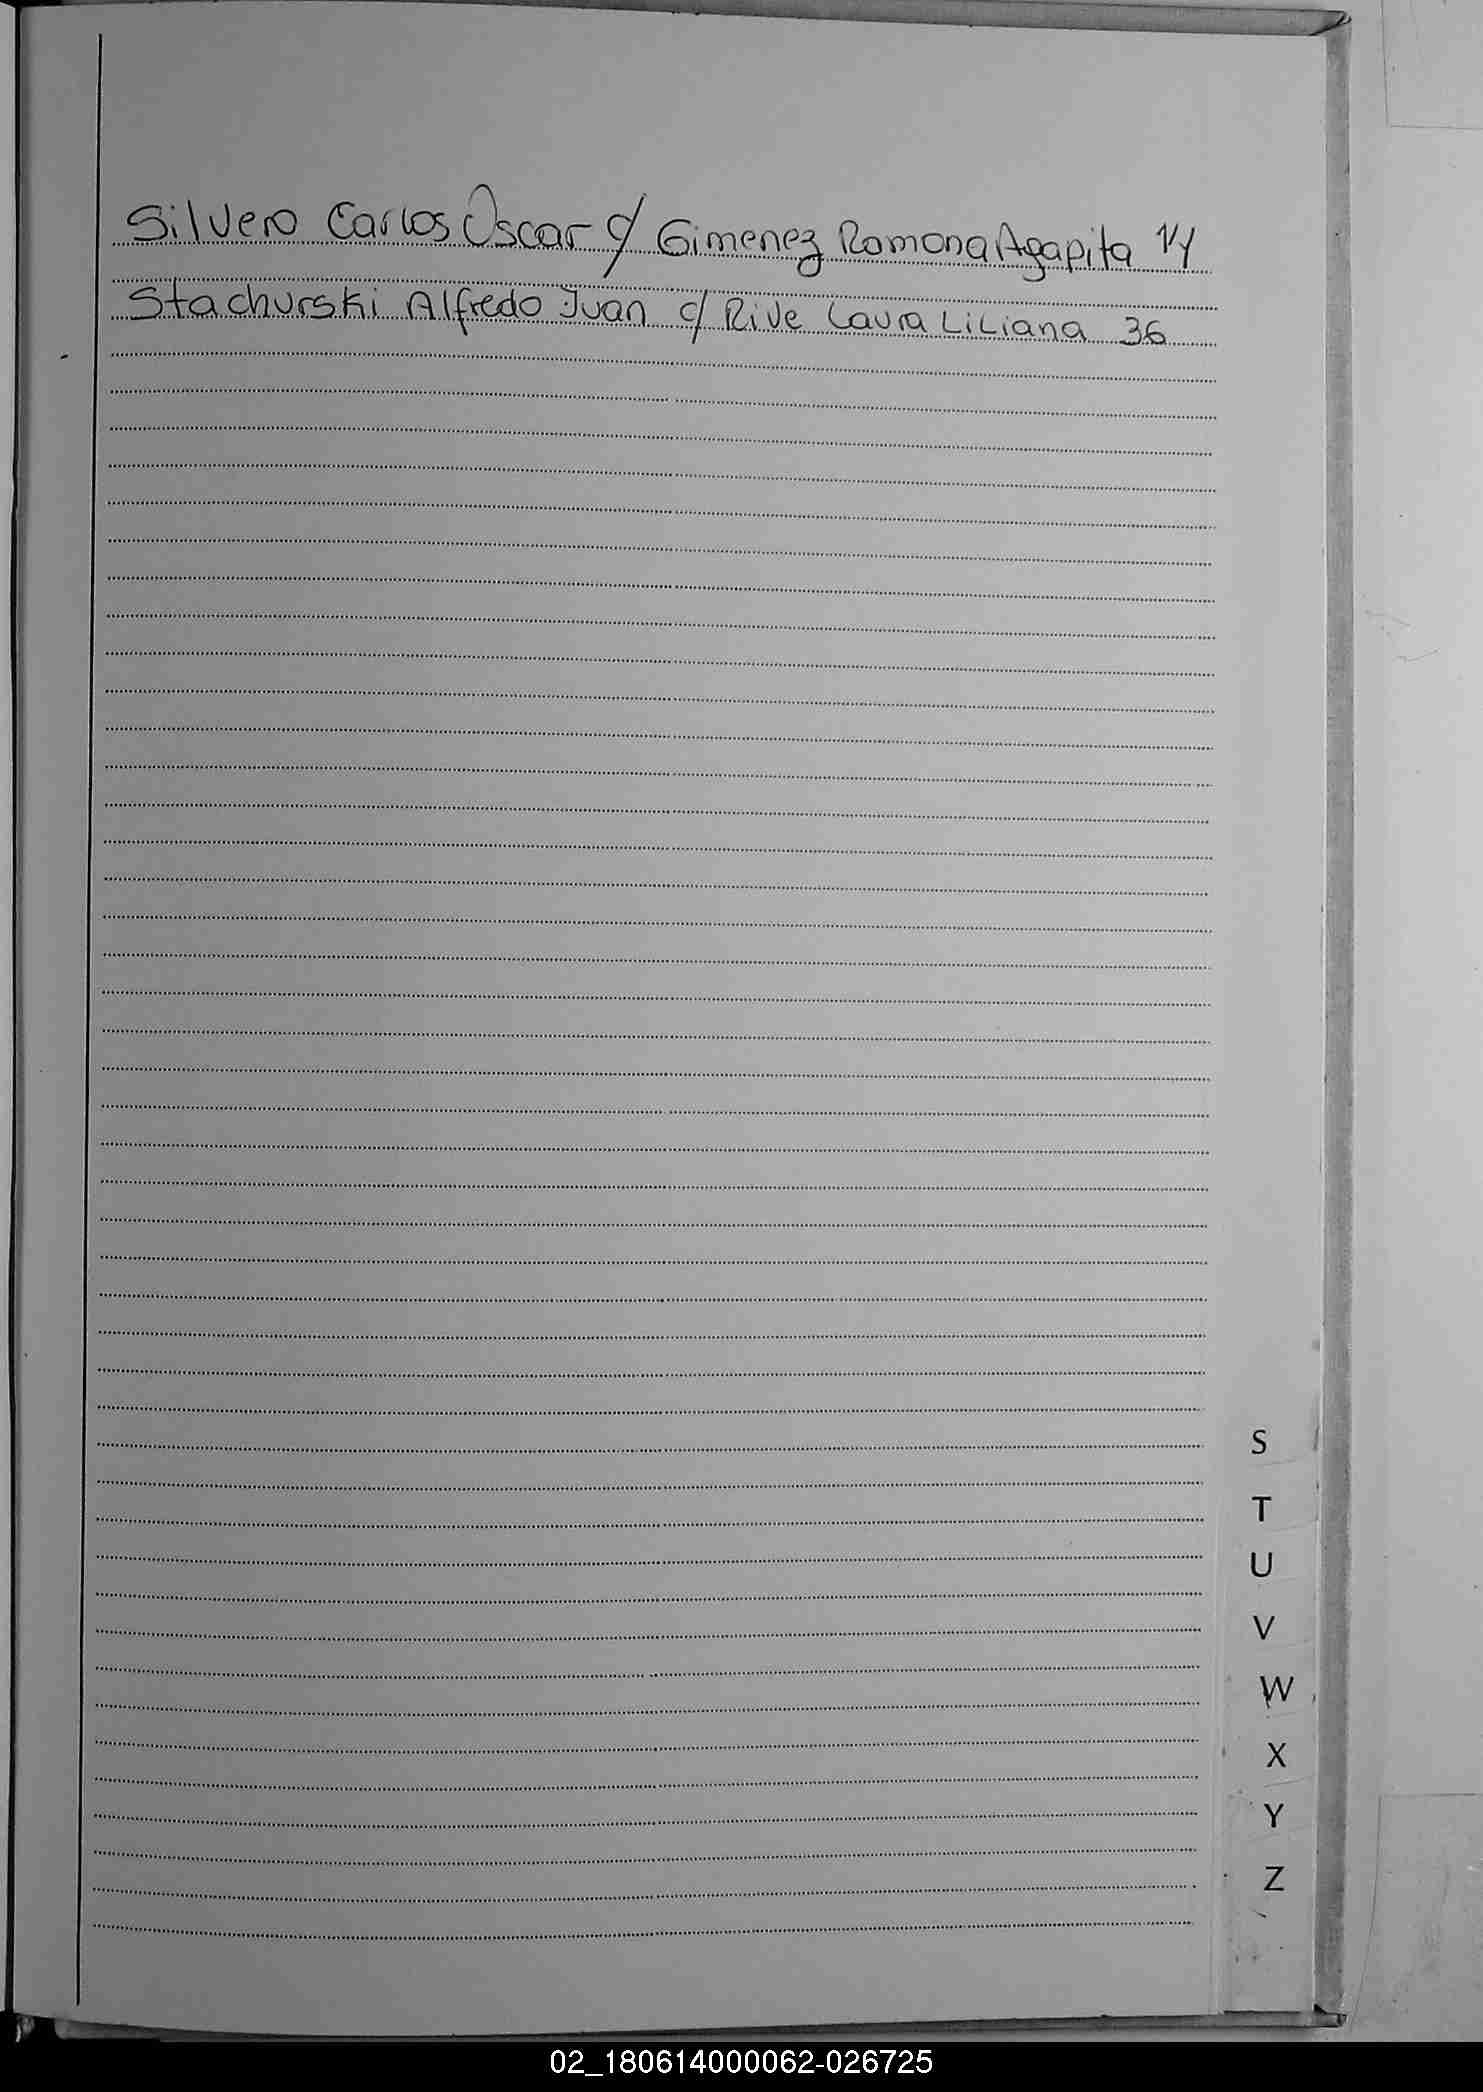 Silvero Carlos Oscar c/ Gimenez Ramona Agapita 14
Stachurski Alfredo Juan c/ Rive Laura Liliana 36
S
T
U
V
W
X
Y
Z
02_180614000062-026725